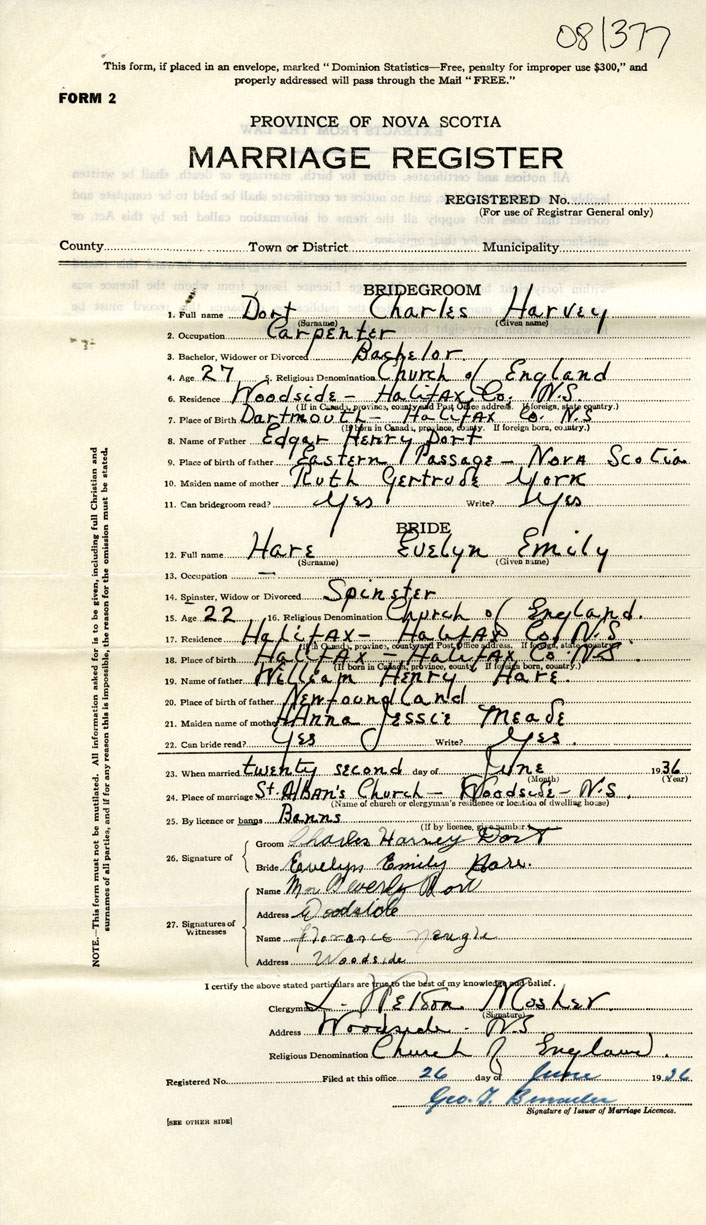 081377
This form, if placed in an envelope, marked "Dominion Statistics—Free, penalty for improper use $300," and
properly addressed will pass through the Mail "FREE."
FORM 2
PROVINCE OF NOVA SCOTIA
MARRIAGE REGISTER
REGISTERED No.
(For use of Registrar General only)
County Town or District Municipality
BRIDEGROOM
1. Full name Dort Charles Harvey
(Surname) (Given name)
2. Occupation Carpenter
3. Bachelor, Widower or Divorced Bachelor.
4. Age 27 5. Religious Denomination Church of England
6. Residence Woodside - Halifax Co. N.S.
(If in Canada, province, county and Post Office address. If foreign, state country.)
7. Place of Birth Dartmouth - Halifax Co. N.S
(If born in Canada, province, county. If foreign born, country.)
8. Name of Father Edgar Henry Dort
9. Place of birth of father Eastern Passage - Nova Scotia
10. Maiden name of mother Ruth Gertrude York
11. Can bridegroom read? Yes Write? Yes
BRIDE
12. Full name Hare Evelyn Emily
(Surname) (Given name)
13. Occupation —
14. Spinster, Widow or Divorced Spinster
15. Age 22 16. Religious Denomination Church of England.
17. Residence Halifax - Halifax Co. N.S.
(If in Canada, province, county and Post Office address. If foreign, state country.)
18. Place of birth Halifax - Halifax Co. N.S.
(If born in Canada, province, county. If foreign born, country.)
19. Name of father William Henry Hare.
20. Place of birth of father Newfoundland
21. Maiden name of mother Hanna Jessie Meade
22. Can bride read? Yes Write? Yes.
23. When married twenty second day of June 1936
(Month) (Year)
24. Place of marriage St. Alban's Church - Woodside - N.S.
(Name of church or clergyman's residence or location of dwelling house)
25. By licence or banns Banns
(If by licence, give number)
26. Signature of
Groom Charles Harvey Dort
Bride Evelyn Emily Hare.
27. Signatures of Witnesses
Name Beverly Dort
Address Woodside
Name Florance
Address Woodside
I certify the above stated particulars are true to the best of my knowledge and belief.
Clergyman L. Nelson Mosher
(Signature)
Address Woodside - N.S.
Religious Denomination Church of England.
Registered No. Filed at this office 26 day of June 1936
Geo. T.
Signature of Issuer of Marriage Licences.
[SEE OTHER SIDE]
NOTE.—This form must not be mutilated. All information asked for is to be given, including full Christian and
surnames of all parties, and if for any reason this is impossible, the reason for the omission must be stated.